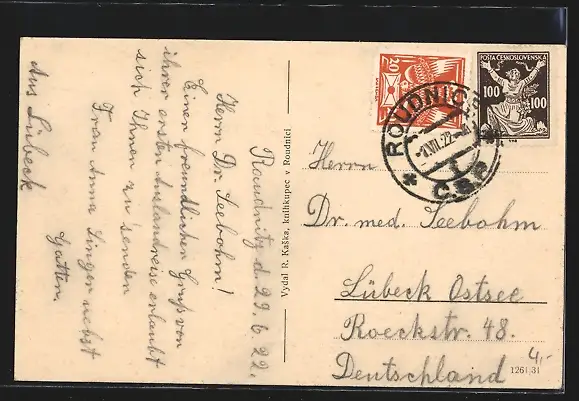 Roudnitz d. 29. 6. 22.
Herrn Dr. Seebohm!
Einen freundlichen Gruss von
ihrer ersten Auslandreise erlaubt
sich Ihnen zu senden
Frau Anna Singer nebst
Gatten.
Aus Lübeck
Vydal R. Kaška, knihkupec v Roudnici
20
POŠTA ČESKOSLOVENSKÁ
100 100
ROUDNICE
-1.VII.22-
Č.S.P.
Herrn
Dr. med. Seebohm
Lübeck Ostsee
Roeckstr. 48.
Deutschland
4,-
1261 31